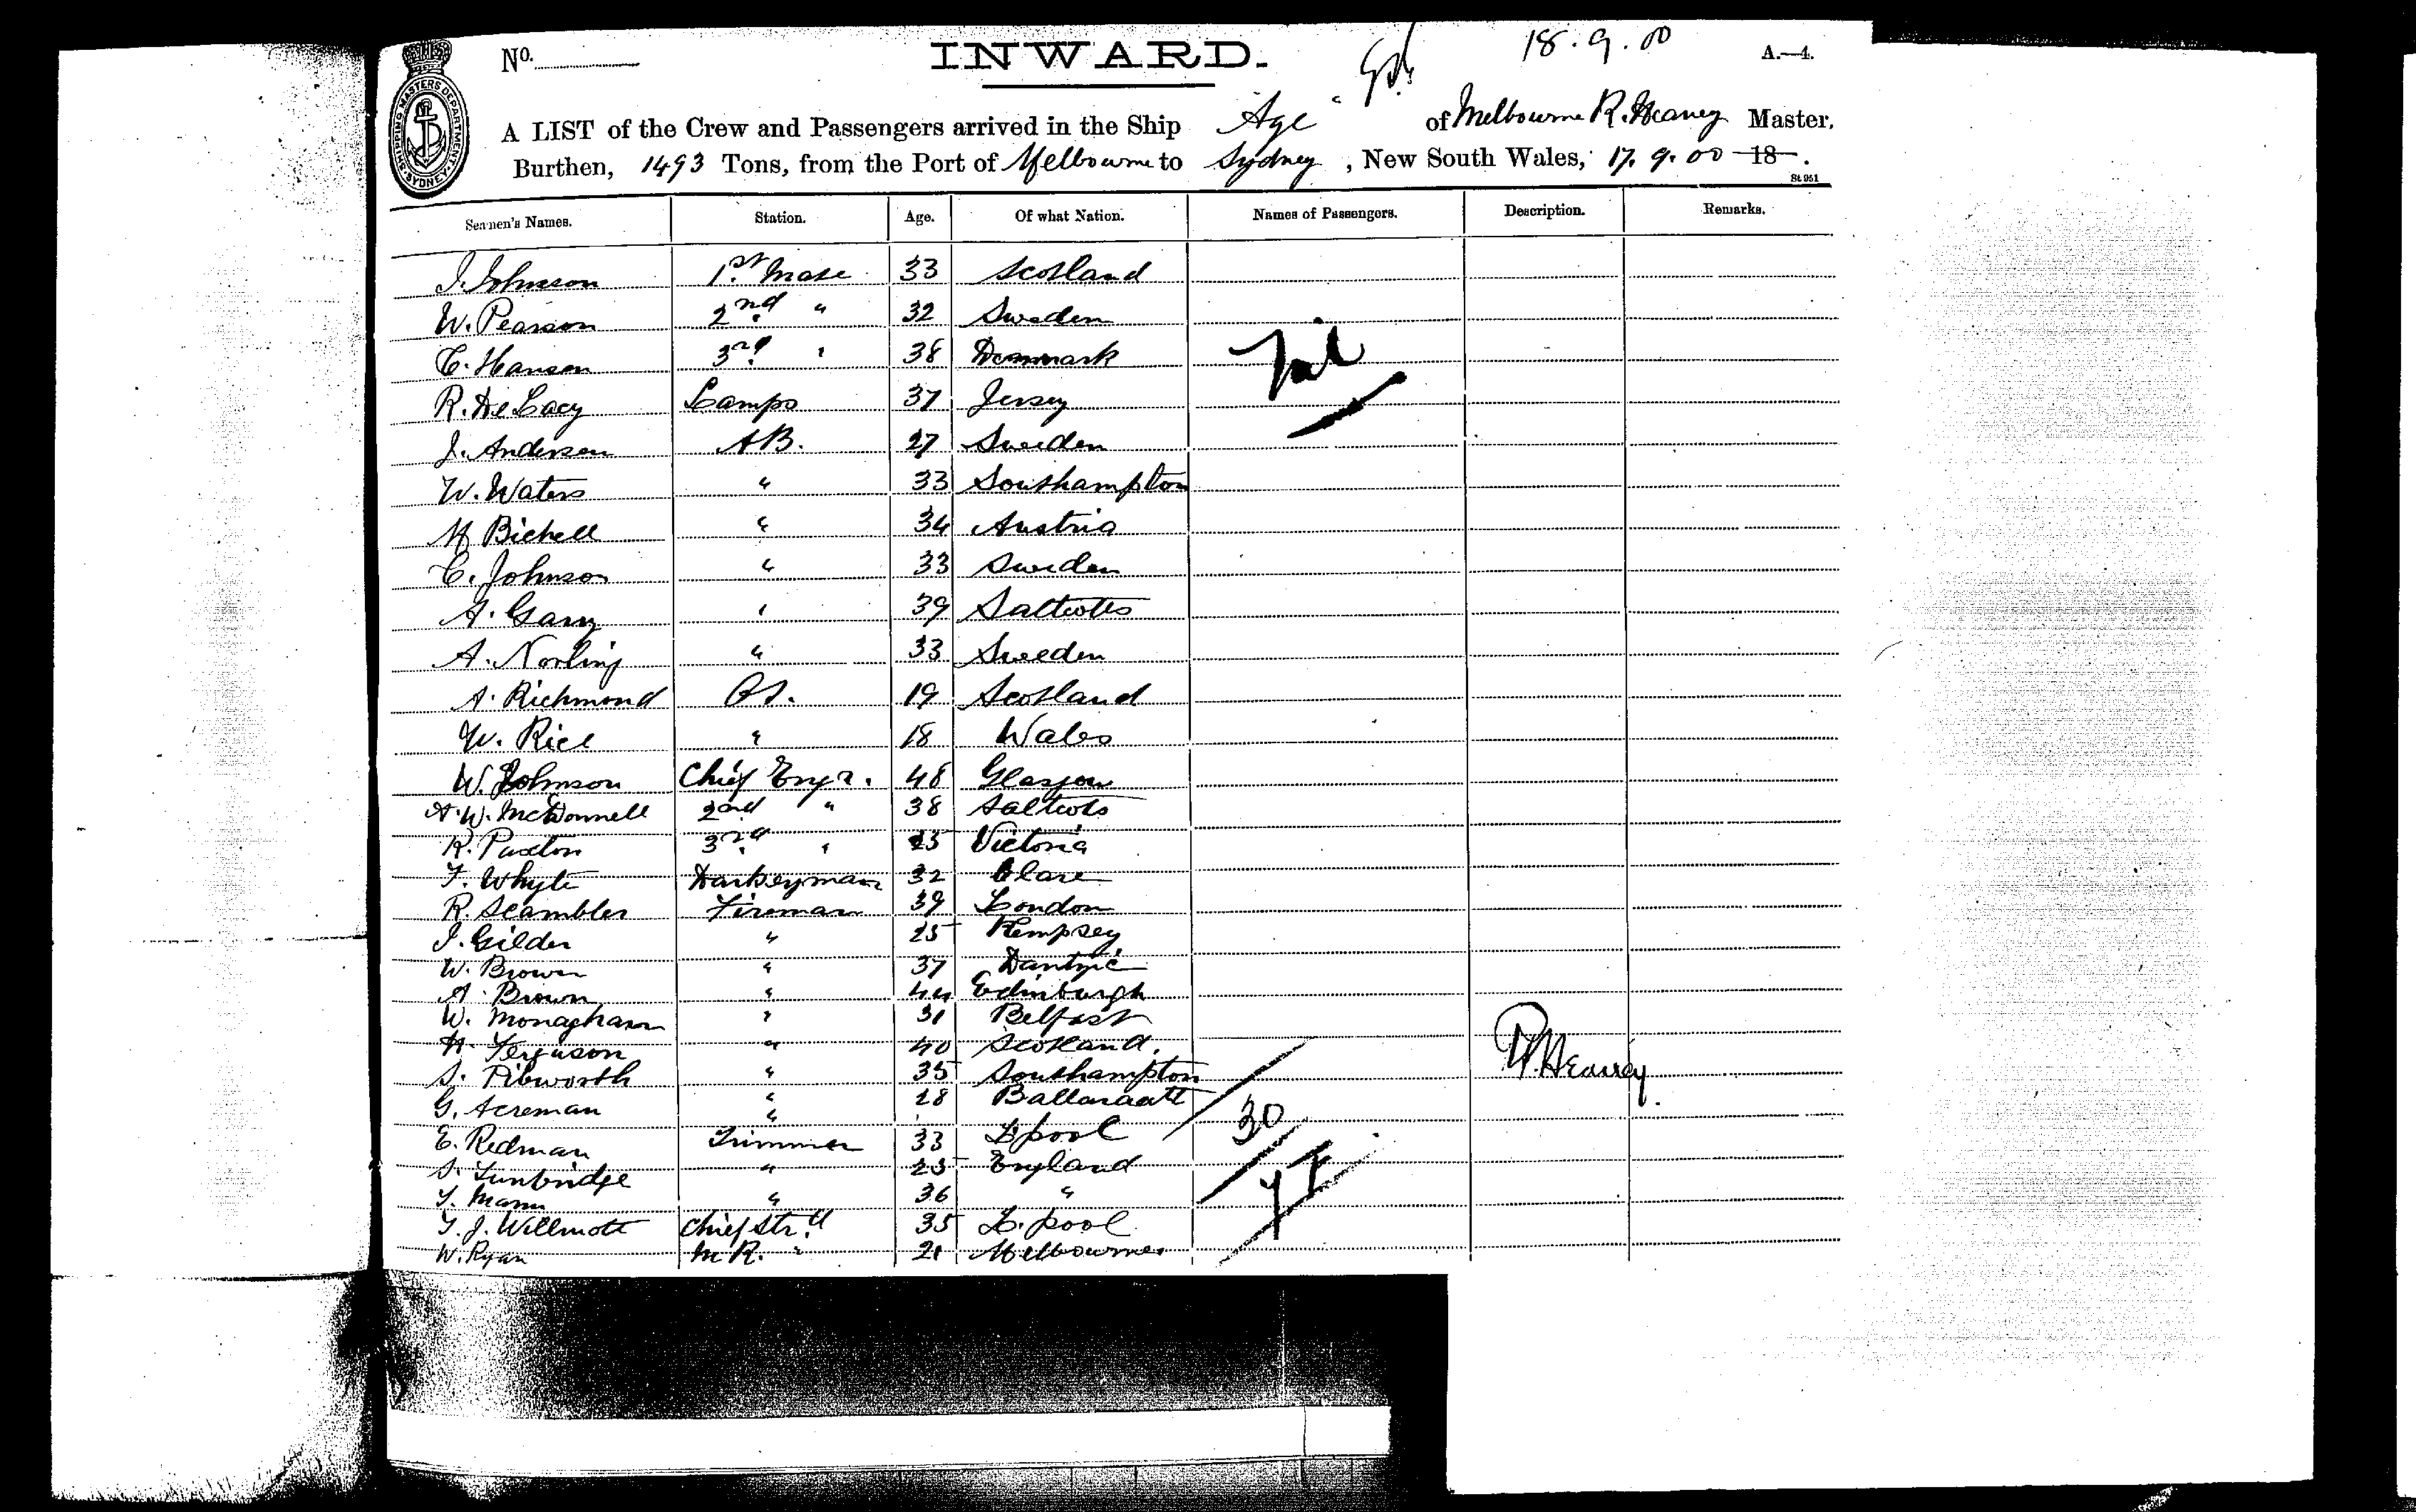 No. INWARD. 18.9.00 A.—4.
SHIPPING MASTERS DEPARTMENT SYDNEY
A LIST of the Crew and Passengers arrived in the Ship "Age" of Melbourne R. Heaney Master,
Burthen, 1493 Tons, from the Port of Melbourne to Sydney, New South Wales, 17.9.00 18 .
St 951
Seamen's Names. Station. Age. Of what Nation. Names of Passengers. Description. Remarks.
J. Johnson 1st Mate 33 Scotland
W. Pearson 2nd " 32 Sweden
C. Hansen 3rd " 38 Denmark Nil
R. De Lacy Lamps 37 Jersey
J. Andersen AB. 27 Sweden
W. Waters " 33 Southampton
M Bichell " 34 Austria
C. Johnson " 33 Sweden
A. Garry " 39 Saltcotes
A. Norling " 33 Sweden
A. Richmond OS. 19 Scotland
W. Rice " 18 Wales
W. Johnson Chief Engr. 48 Glasgow
A. W. McDonnell 2nd " 38 Saltcots
R. Paxton 3rd " 25 Victoria
T. Whyte Donkeyman 32 Clare
R. Scambler Fireman 39 London
J. Gilder " 25 Kempsey
W. Brown " 37 Dantzic
A. Brown " 44 Edinburgh
W. Monaghan " 31 Belfast
H. Ferguson " 40 Scotland.
S. Pibworth " 35 Southampton R. Heaney.
G. Acreman " 28 Ballaraatt
E. Redman Trimmer 33 L'pool 30
S. Tunbridge " 25 England
T. Mann " 36 "
T. J. Willmott Chief Strd 35 L.pool
W. Ryan M R. " 21 Melbourne